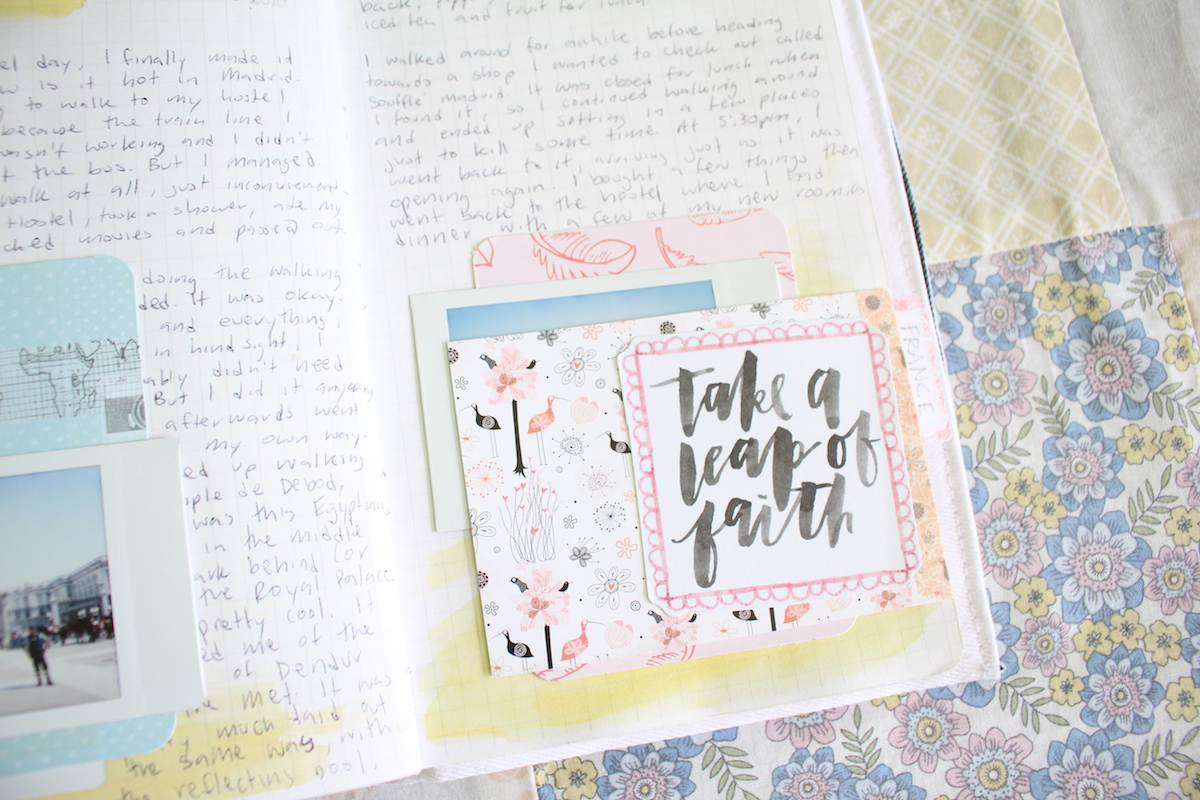 2016
el day, I finally made it
w is it hot in Madrid.
g to walk to my hostel
because the train line I
wasn't working and I didn't
t the bus. But I managed
walk at all, just inconvienent
Hostel, took a shower, ate my
ched movies and passed out.
doing the walking
ded. It was okay.
and everything,
in hindsight, I
ably didn't need
But I did it anyway
afterwards went
my own way.
ed up walking
ple de Debod,
was this Egyptian,
in the middle
ark behind (or
the Royal Palace.
pretty cool. It
ed me of the
of Dendur
he Met. It was
much laid out
the same way with
the reflecting pool.
back,
iced tea and fruit for lunch.
I walked around for awhile before heading
towards a shop I wanted to check out called
Souffle Madrid. It was closed for lunch when
I found it, so I continued walking around
and ended up sitting in a few places
just to kill some time. At 5:30pm, I
went back to it, arriving just as it was
opening again. I bought a few things then
went back to the hostel where I had
dinner with a few of my new roomies
take a
leap of
faith
FRANCE